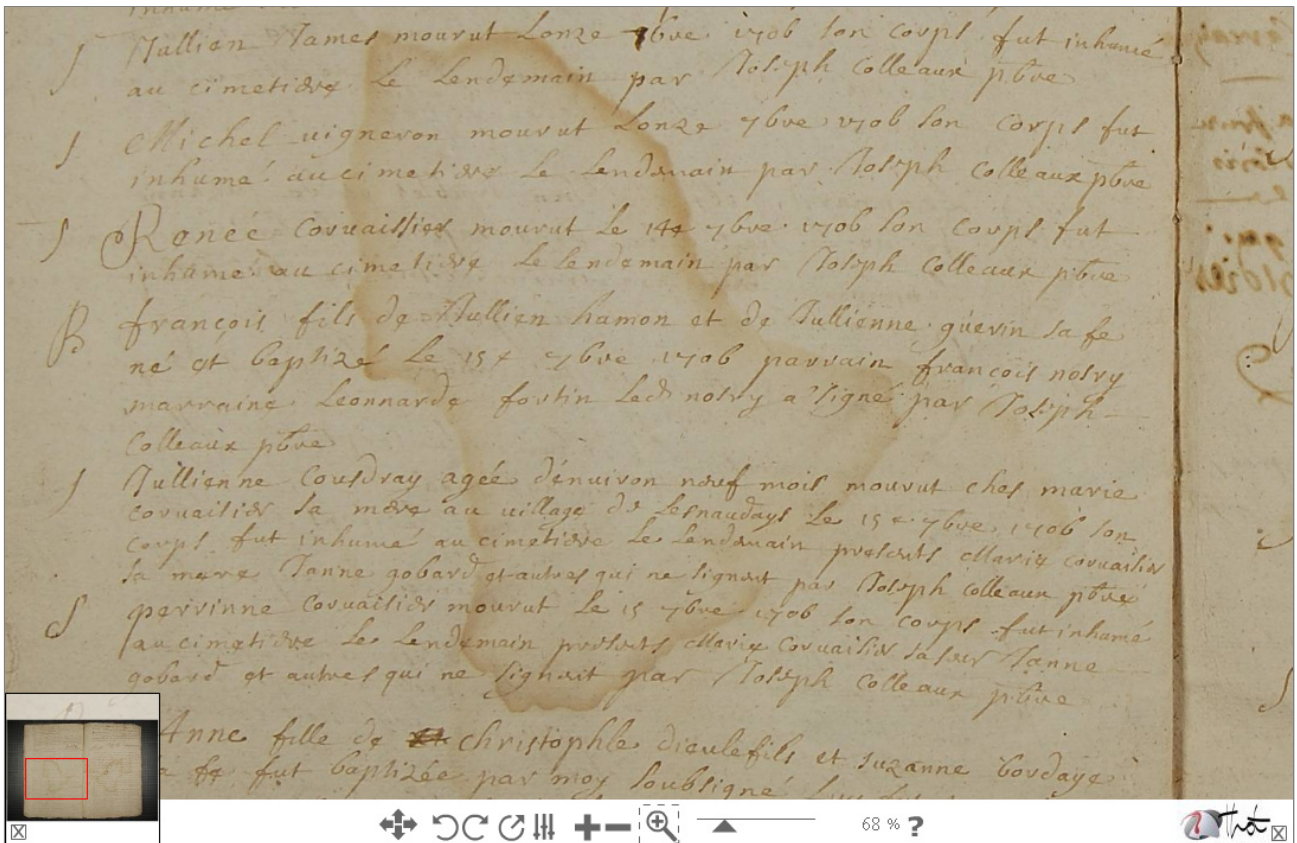 S Jullien James mourut Lonze 7bre 1706 son corps fut inhumé
au cimetiere Le Lendemain par Joseph Colleaux pbre
S Michel vigneron mourut Lonze 7bre 1706 son corps fut
inhumé au cimetiere Le Lendemain par Joseph Colleaux pbre
S Renéé Corvaissier mourut Le 14e 7bre 1706 son corps fut
inhumé au cimetiere Le Lendemain par Joseph Colleaux pbre
B françois fils de Jullien hamon et de Jullienne guerin sa fe
né et baptizé Le 15e 7bre 1706 parrain françois nosry
marraine Leonnarde fortin Led nosry a signé par Joseph
Colleaux pbre
S Jullienne Cousdray ageé dénuiron neuf mois mourut ches marie
Corvaisier sa mere au village de Lesnaudays Le 15e 7bre 1706 son
corps fut inhumé au cimetiere Le Lendemain presents Marie Corvaisier
sa mere Janne gobard et autres qui ne signent par Joseph Colleaux pbre
S perrinne Corvaisier mourut Le 15 7bre 1706 son corps fut inhumé
au cimetiere Le Lendemain presents Marie Corvaisier sa seur Janne
gobard et autres qui ne signent par Joseph Colleaux pbre
Anne fille de christophle dieulefils et suzanne bordaye
fe fut baptizée par moy soubsigné
68 % ?